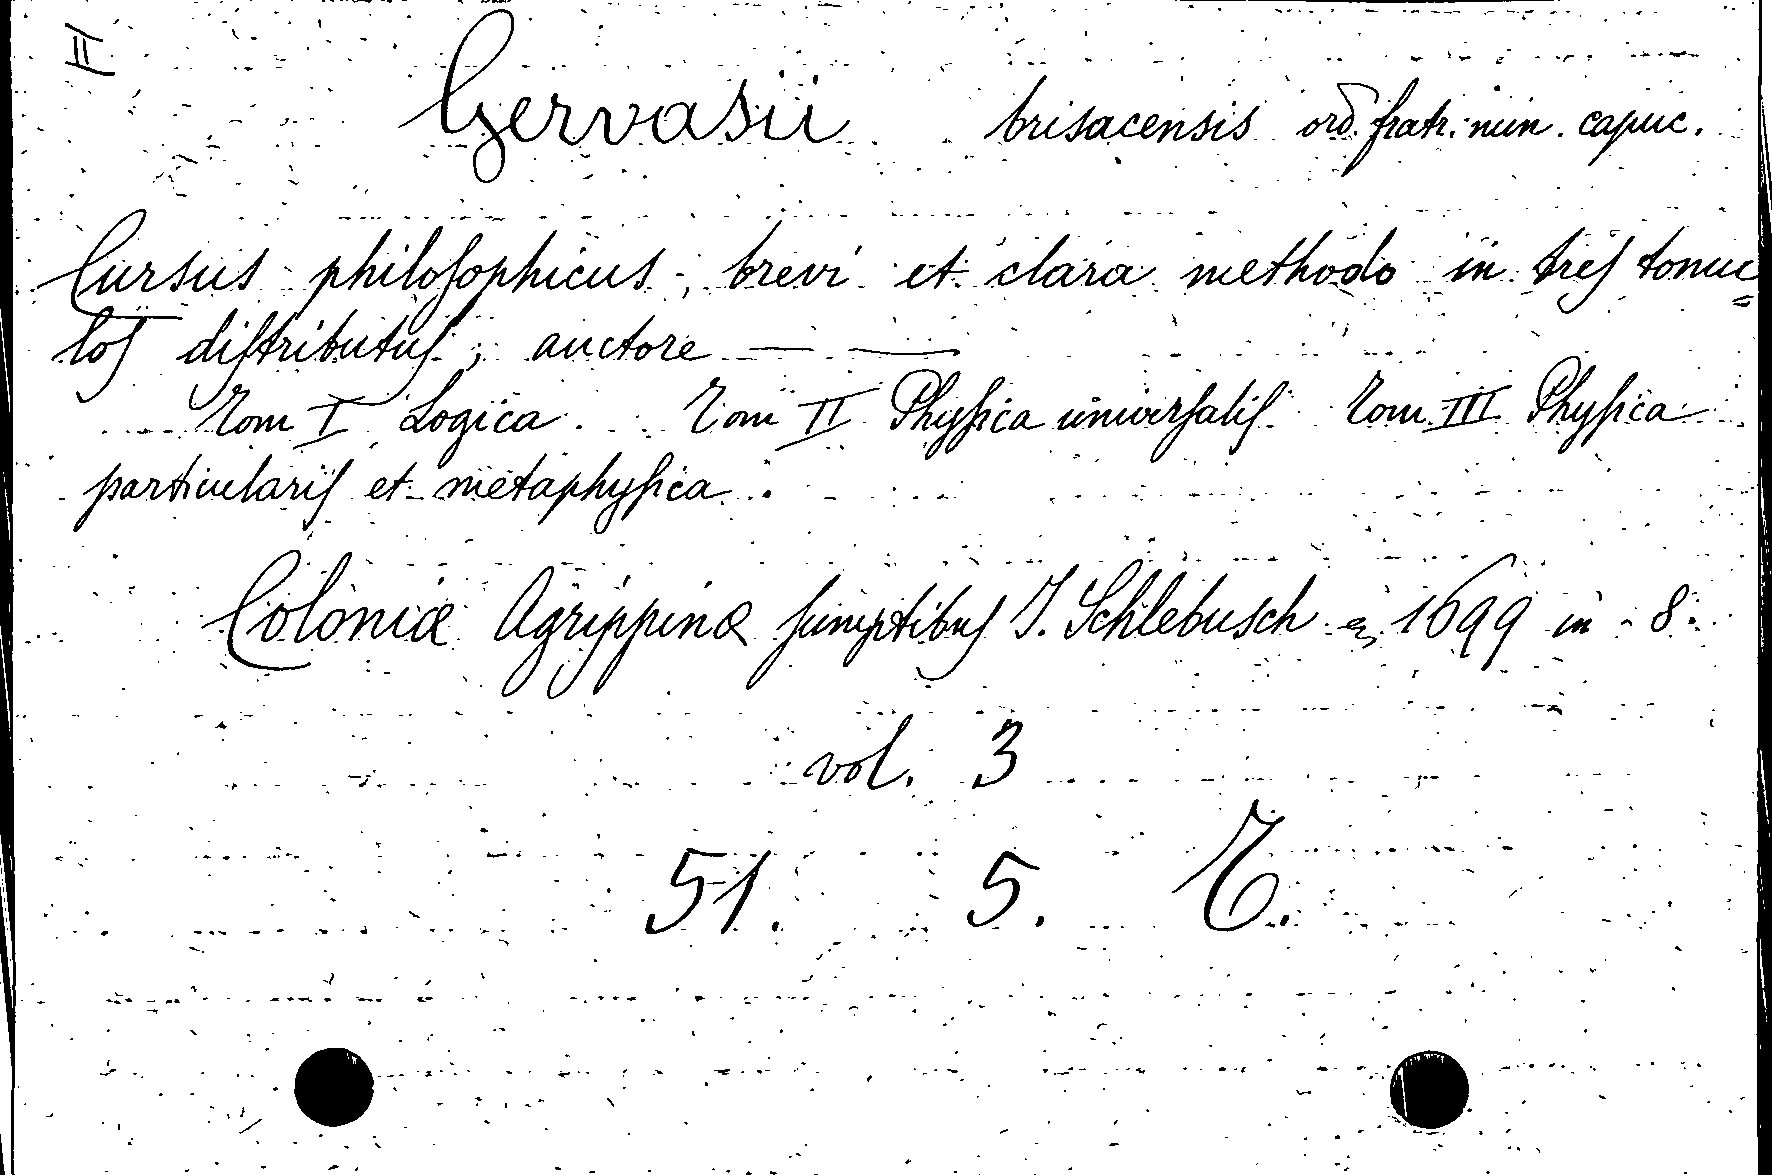 II
Gervasii brisacensis ord. fratr. min. capuc.
Cursus philoſophicus, brevi et clara methodo in treſ tomu=
loſ diſtributuſ, auctore — —
Tom I Logica. Tom II Phyſica univerſaliſ Tom III Phyſica
particulariſ et metaphyſica.
Coloniæ Agrippinæ ſumptibuſ J. Schlebusch 1699 in 8.
vol. 3
51. 5.